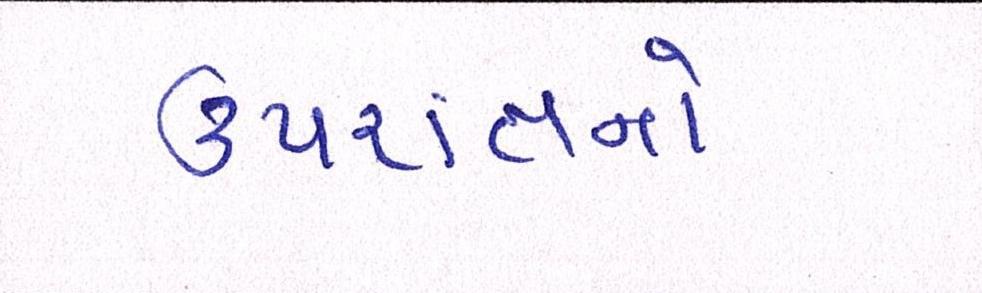 ઉપરાંતનો